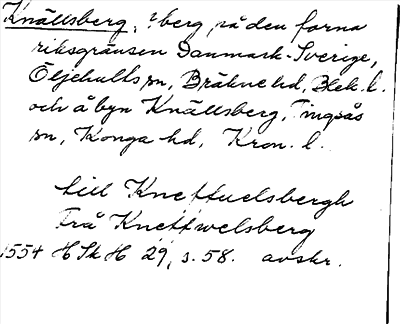 Knällsberg, ? berg, på den forna
riksgränsen Danmark-Sverige,
Öljehults sn, Bräkne hd, Blek. l.
och å byn Knällsberg, Tingsås
sn, Konga hd, Kron. l.
till Kneffuelsbergh
Frå Kneffwelsberg
1554 HSkH 29, s. 58. avskr.